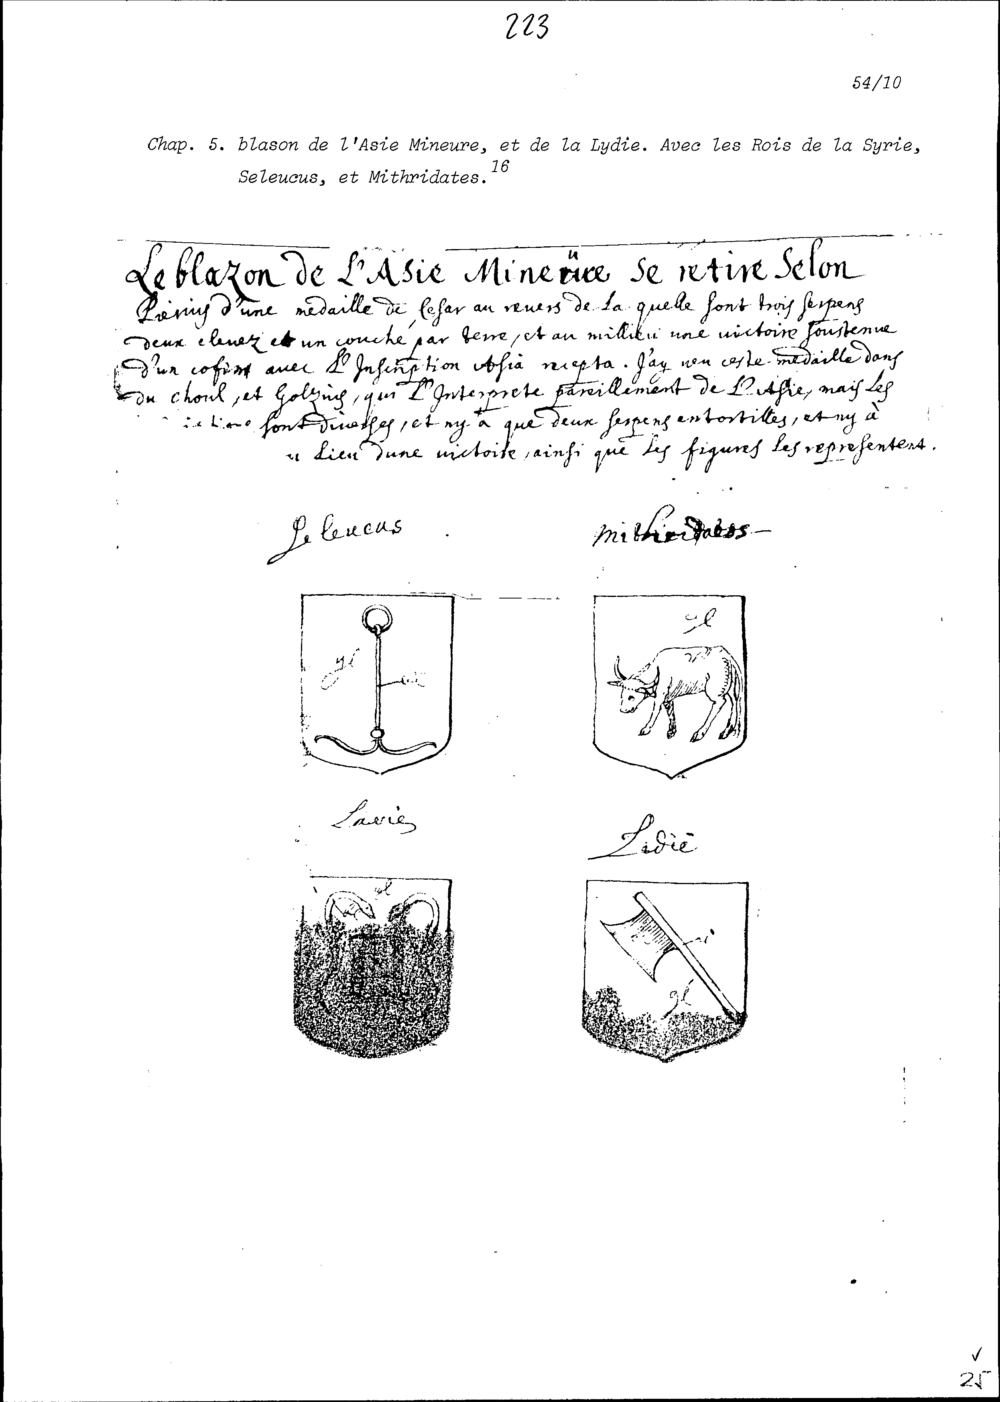 223
54/10
Chap. 5. blason de l'Asie Mineure, et de la Lydie. Avec les Rois de la Syrie,
Seleucus, et Mithridates.16
Le blazon de L'Asie Mineure se retire Selon
Pierius d'une medaille de Cesar au revers de la quelle sont trois serpens
deux elevez et un couché par terre, et au millieu une victoire soustenue
d'un cofint avec L'Inscription Asia recepta. J'ay veu ceste medaille dans
du choul, et Golzius, qui L'Interprete pareillement de L'Asie, mais les
sont diverses, et ny à que deux serpens entortilles, et ny à
Lieu d'une victoire, ainsi que les figures les representent.
Seleucus
Mithridates
gl
gl
Lidie
gl
gl
25